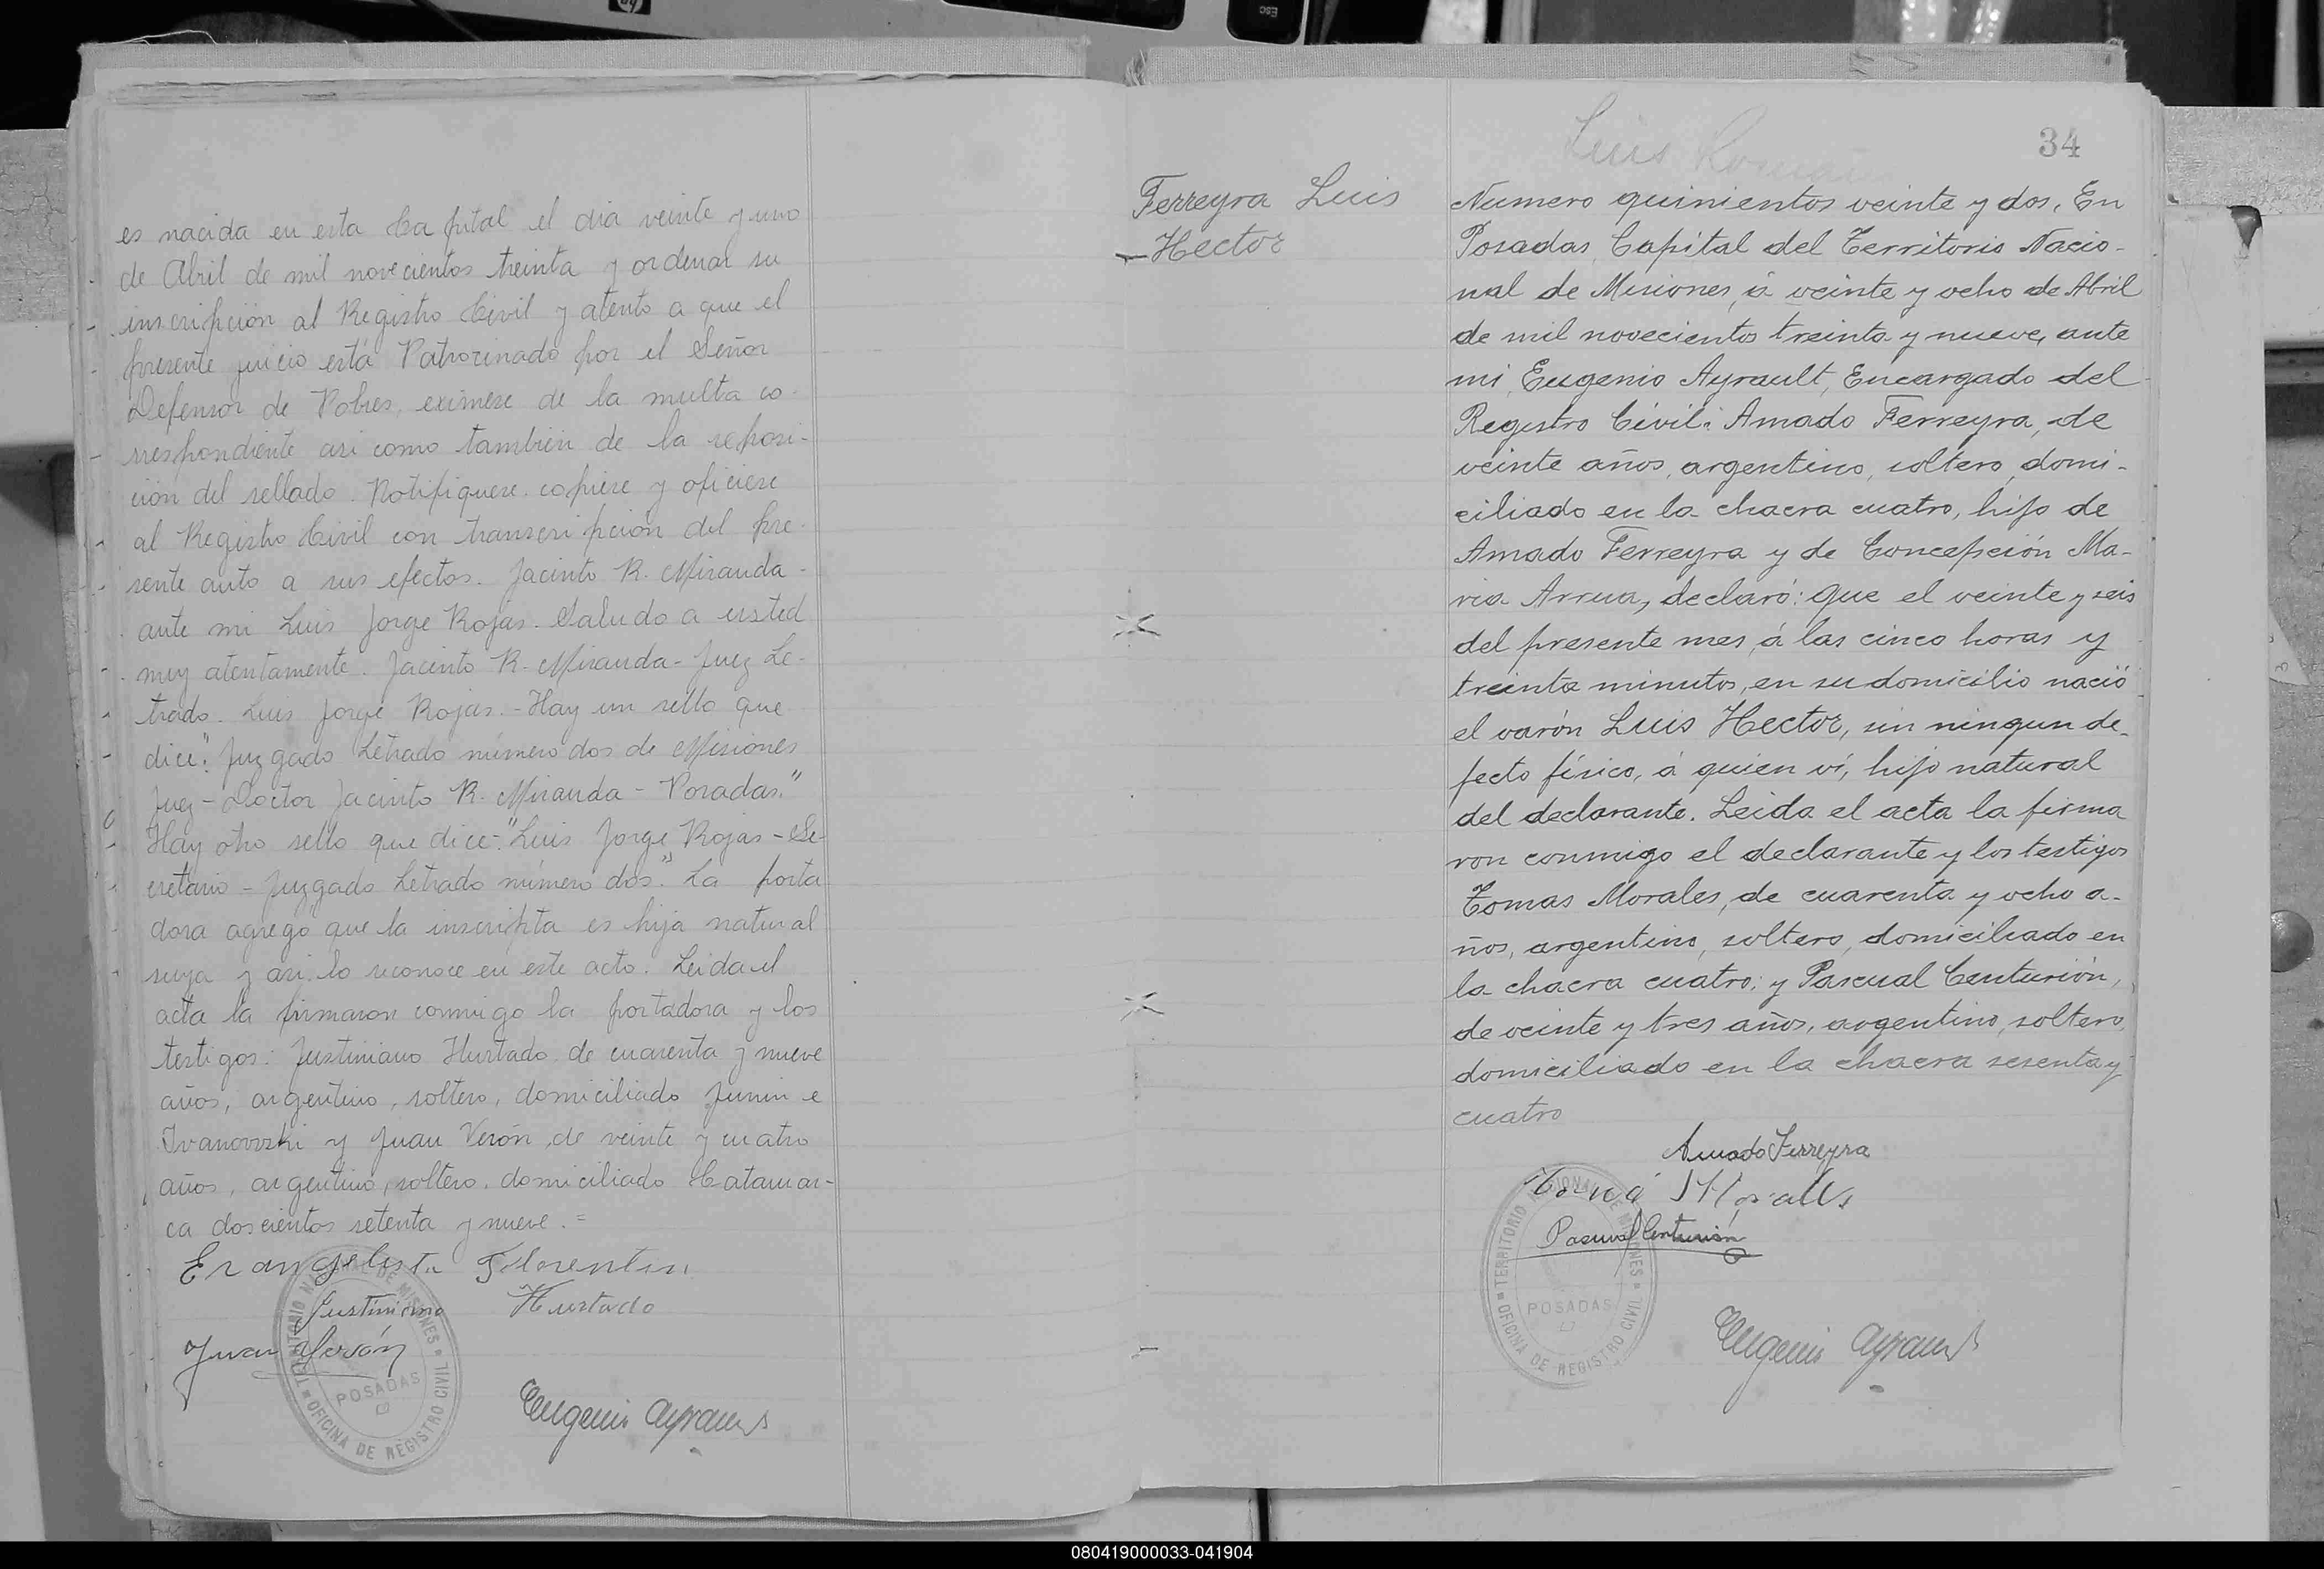 es nacida en esta Capital el dia veinte y uno
de Abril de mil novecientos treinta y ordenar su
inscripción al Registro Civil y atento a que el
presente juicio está Patrocinado por el Señor
Defensor de Pobres, eximese de la multa co-
rrespondiente asi como tambien de la reposi-
ción del sellado. Notifiquese. copiese y oficiese
al Registro Civil con transcripción del pre-
sente auto a sus efectos. Jacinto R. Miranda-
ante mi Luis Jorge Rojas. Saludo a usted
muy atentamente. Jacinto R. Miranda - Juez Le-
trado. Luis Jorge Rojas. - Hay un sello que
dice: "Juzgado Letrado número dos de Misiones
Juez - Doctor Jacinto R. Miranda - Posadas."
Hay otro sello que dice: "Luis Jorge Rojas - Se-
cretario - Juzgado Letrado número dos". La porta
dora agregó que la inscripta es hija natural
suya y asi lo reconoce en este acto. Leida el
acta la firmaron conmigo la portadora y los
testigos: Justiniano Hurtado, de cuarenta y nueve
años, argentino, soltero, domiciliado Junin e
Ivanovski y Juan Verón, de veinte y cuatro
años, argentino, soltero, domiciliado Catamar-
ca doscientos setenta y nueve. =
Evangelista Florentin
Justiniano Hurtado
Juan Verón
TERRITORIO NACIONAL DE MISIONES
POSADAS
OFICINA DE REGISTRO CIVIL
Eugenio Ayrault
34
Luis Roman
Ferreyra Luis
-Hector
Numero quinientos veinte y dos. En
Posadas, Capital del Territorio Nacio-
nal de Misiones, á veinte y ocho de Abril
de mil novecientos treinta y nueve, ante
mi, Eugenio Ayrault, Encargado del
Registro Civil: Amado Ferreyra, de
veinte años, argentino, soltero, domi-
ciliado en la chacra cuatro, hijo de
Amado Ferreyra y de Concepción Ma-
ria Arrua, declaró: Que el veinte y seis
del presente mes, á las cinco horas y
treinta minutos, en su domicilio nació
el varón Luis Hector, sin ningun de-
fecto físico, á quien ví, hijo natural
del declarante. Leida el acta la firma
ron conmigo el declarante y los testigos
Tomas Morales, de cuarenta y ocho a-
ños, argentino, soltero, domiciliado en
la chacra cuatro; y Pascual Centurión,
de veinte y tres años, argentino, soltero,
domiciliado en la chacra sesenta y
cuatro
Amado Ferreyra
Tomá Morales
Pascual Centurión
TERRITORIO NACIONAL DE MISIONES
POSADAS
OFICINA DE REGISTRO CIVIL
Eugenio Ayrault
080419000033-041904